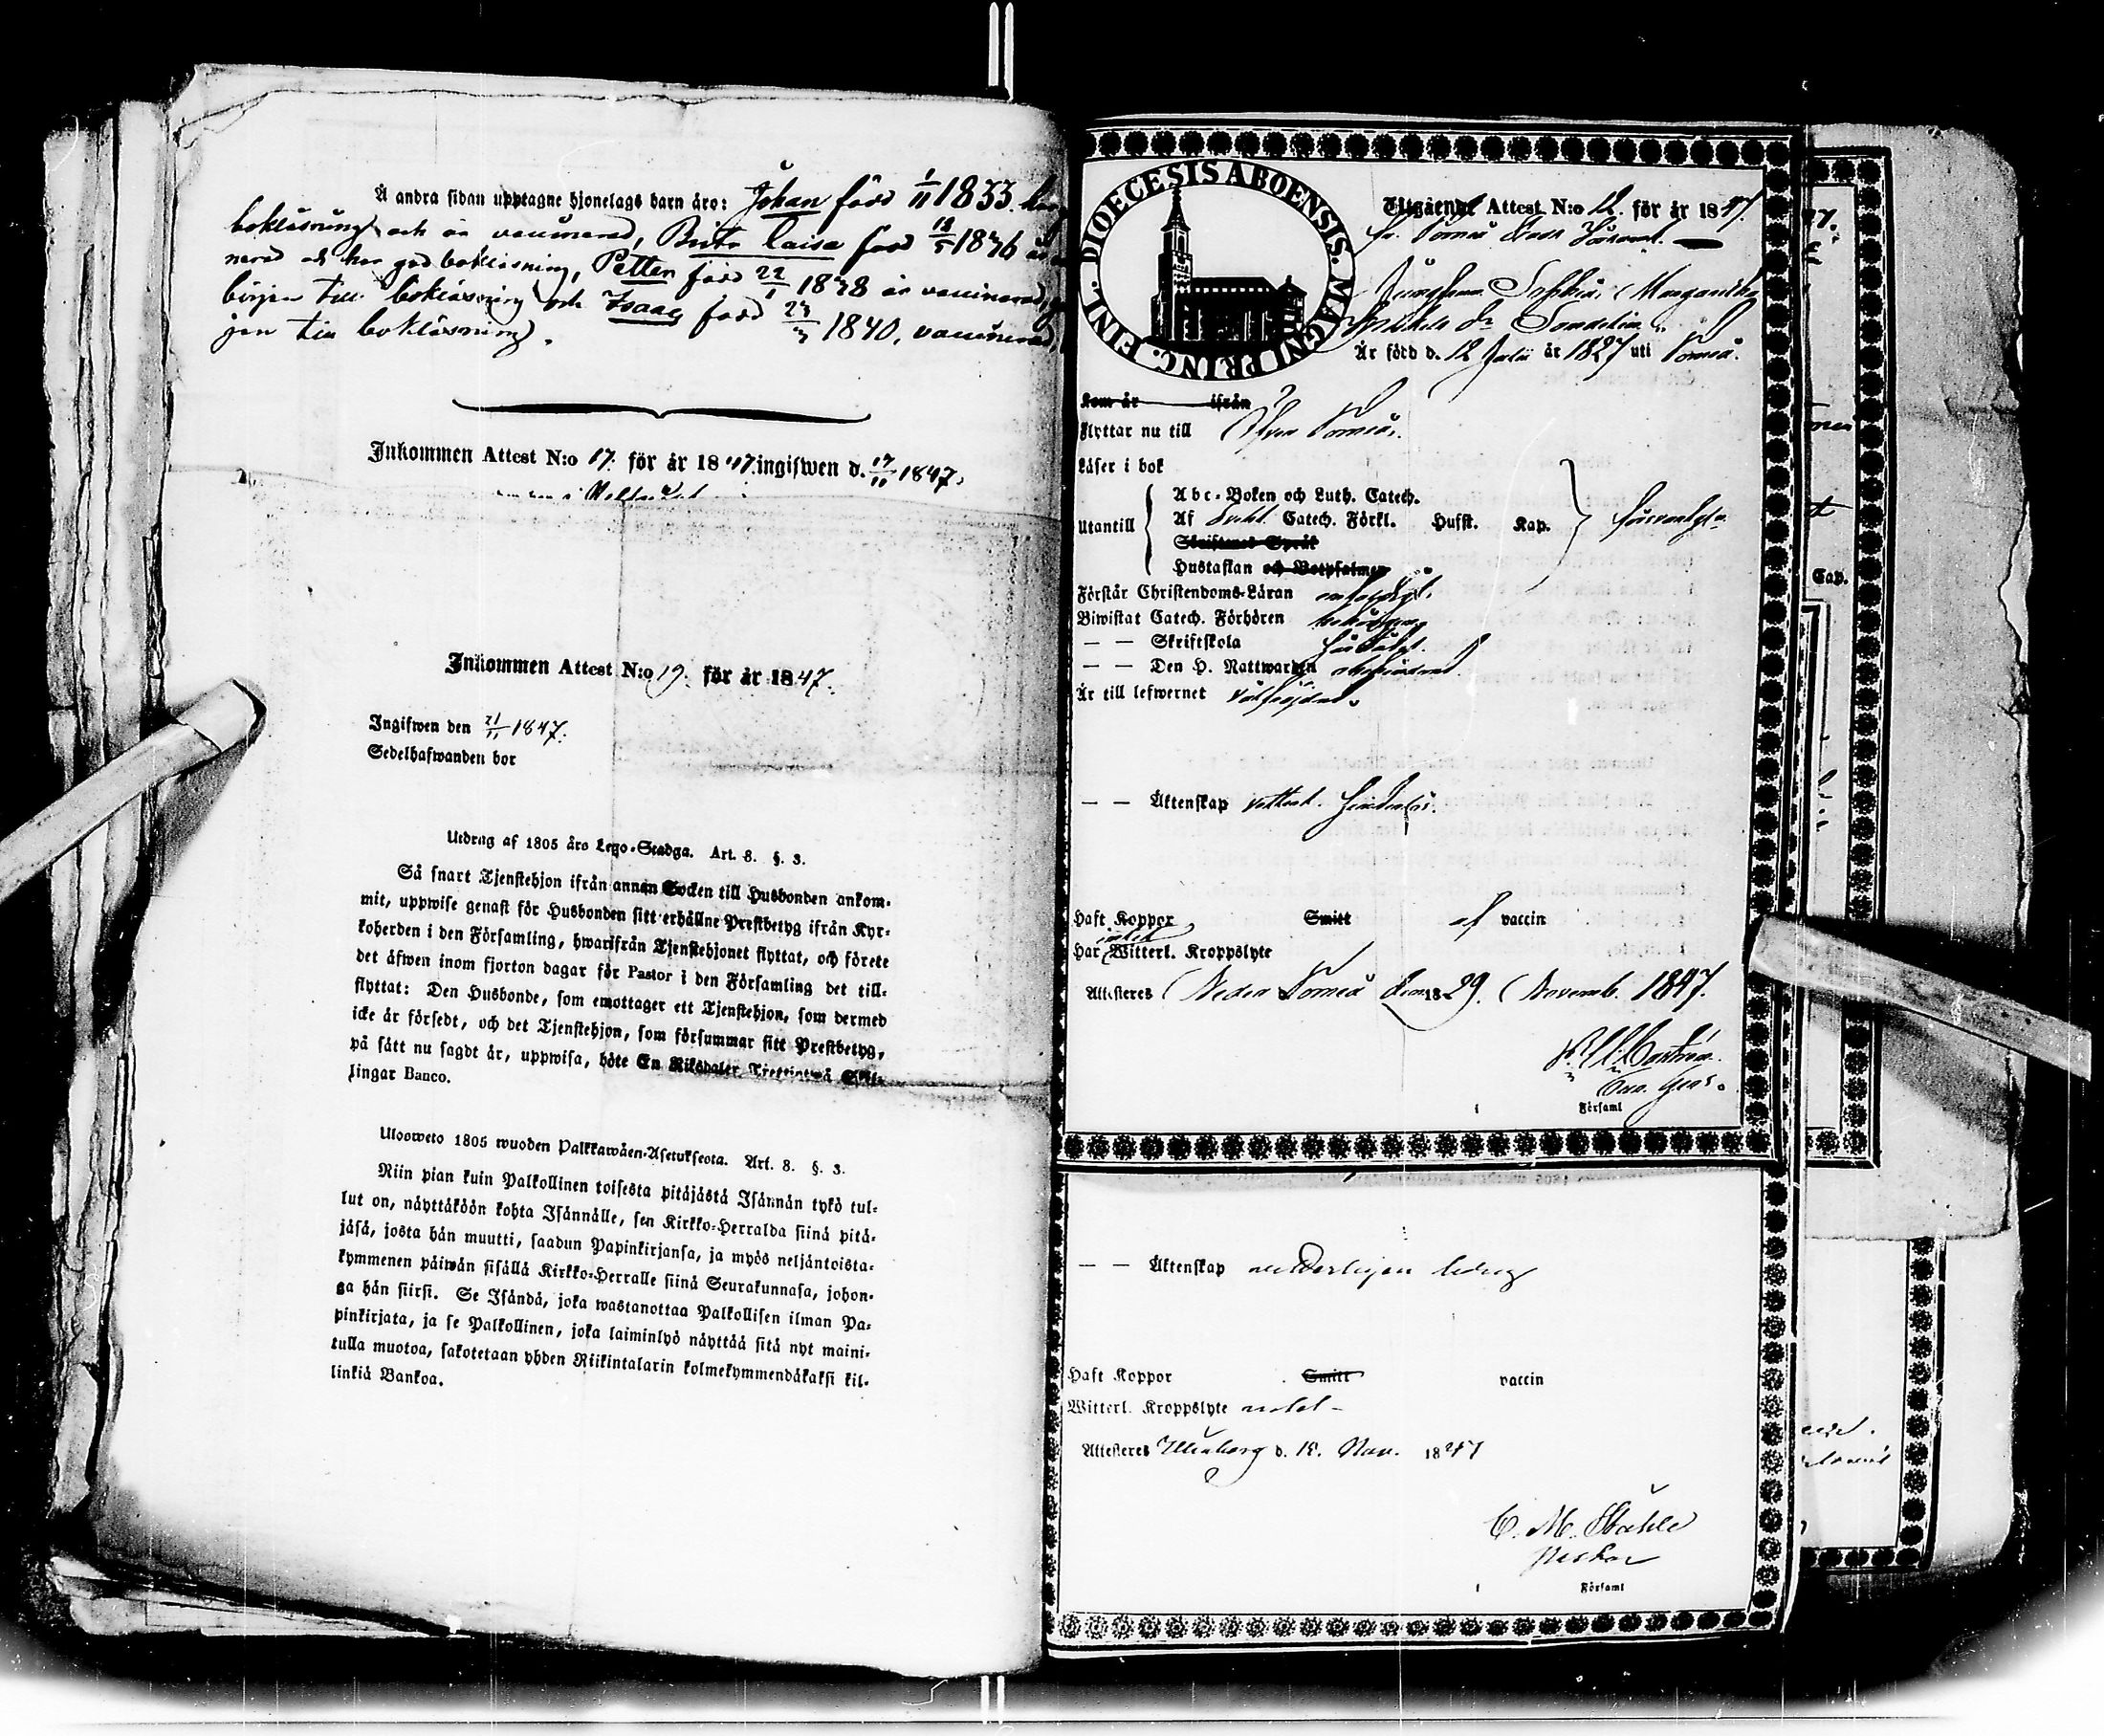 Å andra sidan upptagne hjonelags barn äro: Johan född 1/11 1833. har
bokläsning och är vaccinerad, Brita Caisa född 18/5 1836 är
nerad och har god bokläsning, Petter född 22/1 1838 är vaccinerad,
början till bokläsning och Isaac född 23/3 1840, vaccinerad,
jan till bokläsning.
Inkommen Attest N:o 17. för år 1847. ingifwen d. 17/11 1847.
Inkommen Attest N:o 19. för år 1847.
Ingifwen den 21/11 1847.
Sedelhafwanden bor
Utdrag af 1805 års Lego-Stadga. Art. 8. §. 3.
Så snart Tjenstehjon ifrån annan Socken till Husbonden ankom-
mit, uppwise genast för Husbonden sitt erhållne Prestbetyg ifrån Kyr-
koherden i den Församling, hwarifrån Tjenstehjonet flyttat, och förete
det äfwen inom fjorton dagar för Pastor i den Församling det till-
flyttat: Den Husbonde, som emottager ett Tjenstehjon, som dermed
icke är försedt, och det Tjenstehjon, som försummar sitt Prestbetyg,
på sätt nu sagdt är, uppwisa, böte En Riksdaler Trettiotwå Skil-
lingar Banco.
Ulosweto 1805 wuoden Palkkawäen-Asetuksesta. Art. 8. §. 3.
Niin pian kuin Palkollinen toisesta pitäjästä Isännän tykö tul-
lut on, näyttäköön kohta Isännälle, sen Kirkko-Herralda siinä pitä-
jäsä, josta hän muutti, saadun Papinkirjansa, ja myös neljäntoista-
kymmenen päiwän sisällä Kirkko-Herralle siinä Seurakunnasa, johon-
ga hän siirsi. Se Isändä, joka wastanottaa Palkollisen ilman Pa-
pinkirjata, ja se Palkollinen, joka laiminlyö näyttää sitä nyt maini-
tulla muotoa, sakotetaan yhden Riikintalarin kolmekymmendäkaksi kil-
linkiä Bankoa.
DIOECESIS ABOENSIS. MAGNI PRINC. FINL.
Utgående Attest N:o 12. för år 1847.
Jungfrun Sophia Margaretha
Är född d. 12 Julii år 1827 uti Torneå.
Kom år ifrån
Flyttar nu till Öfver Torneå.
Läser i bok
Abc-Boken och Luth. Catech.
Utantill Af Svebil. Catech. Förkl. Husst. Kap. försvarligt
Skriftenes Språk
Hustaflan och Botpsalmer
Förstår Christendoms-Läran
Biwistat Catech. Förhören
— — Skriftskola
— — Den H. Nattwarden
Är till lefwernet välfrejdad.
— — Äktenskap vetterl. hinderlös.
Haft Koppor Smitt af vaccin
intet
Har Witterl. Kroppslyte
Attesteres Neder Torneå den 29. Novemb. 1847.
i Församl
— — Äktenskap vederligen ledig
Haft Koppor Smitt vaccin
Witterl. Kroppslyte intet -
Attesteres Uleåborg d. 15. Nov. 1847
C. M. Ståhle
i Församl
Cap.